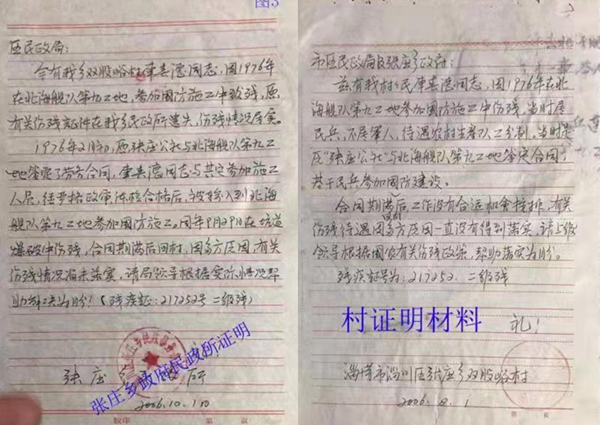 图3
区民政局:
今有我乡双股峪村肇喜德同志,因1976年
在北海舰队第九工地,参加国防施工中致残,原
有关伤残证件在我乡民政所遗失,伤残情况属实。
1976年2月初,原张庄公社与北海舰队第九工
地签定了劳务合同,肇喜德同志与其它参加施工
人员,经严格政审,体检合格后,被接入到北海
舰队第九工地参加国防施工。同年9月29日在坑道
爆破中伤残,合同期满后回村,因多方原因,有关
伤残情况省未落实,请局领导根据实际情况帮
助解决为盼!(残疾证:217252号 二级残)
张庄 所
2006.10.1
张庄乡政府民政所证明
市区民政局及张庄乡政府:
兹有我村村民肇喜德同志,因1976年在北
海舰队第九工地参加国防施工中伤残,当时是
民兵,不属军人,待遇农村生产队工分制,当时是
原"张庄公社"与北海舰队第九工地签定合同,
基于民兵参加国防建设。
合同期满后,工作没有合适和安排,有关
伤残待遇因多方原因一直没有得到落实,请上级
领导根据国家有关伤残政策,帮助落实为盼。
残疾证号为:217252. 二级残
村证明材料
礼!
淄博市淄川区张庄乡双股峪村
2006.8.1